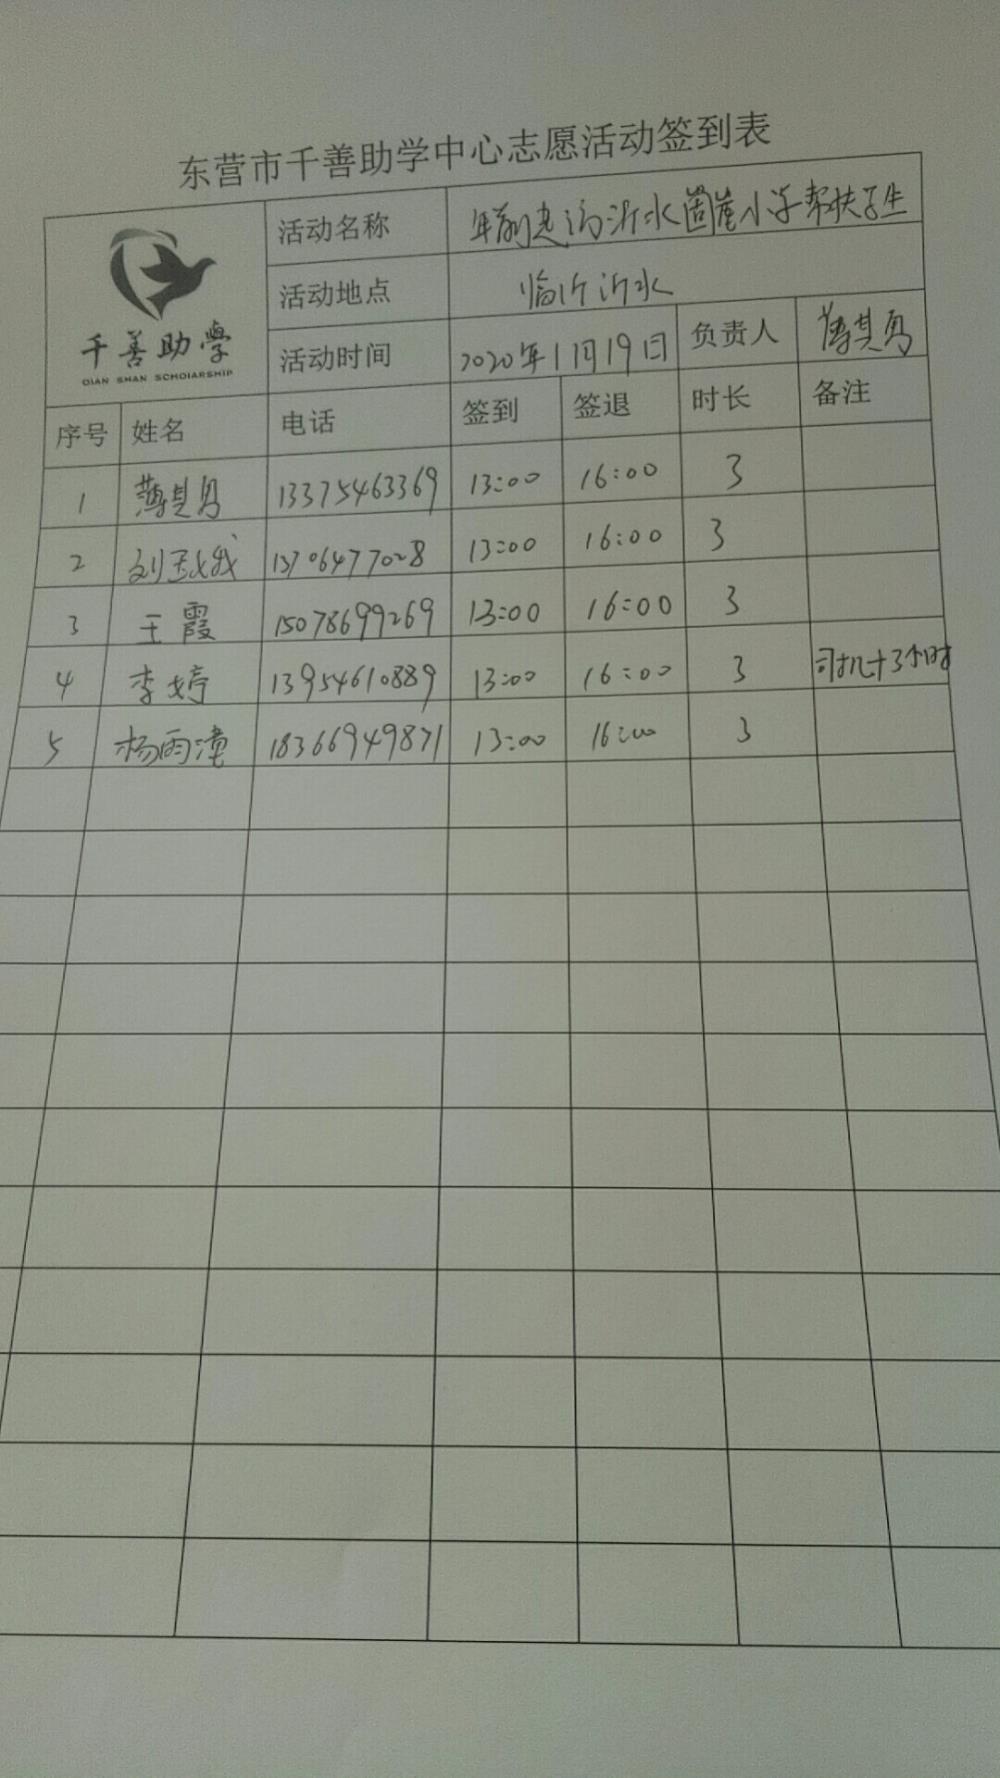 东营市千善助学中心志愿活动签到表
千善助學
QIAN SHAN SCHOIARSHIP
活动名称 年前走访沂水圈崖小学帮扶学生
活动地点 临沂沂水
活动时间 2020年1月19日 负责人 薄其勇
序号 姓名 电话 签到 签退 时长 备注
1 薄其勇 13375463369 13:00 16:00 3
2 刘 13706477028 13:00 16:00 3
3 王霞 15078699269 13:00 16:00 3
4 李婷 13954610889 13:00 16:00 3 司机+3个小时
5 杨雨潼 18366949871 13:00 16:00 3